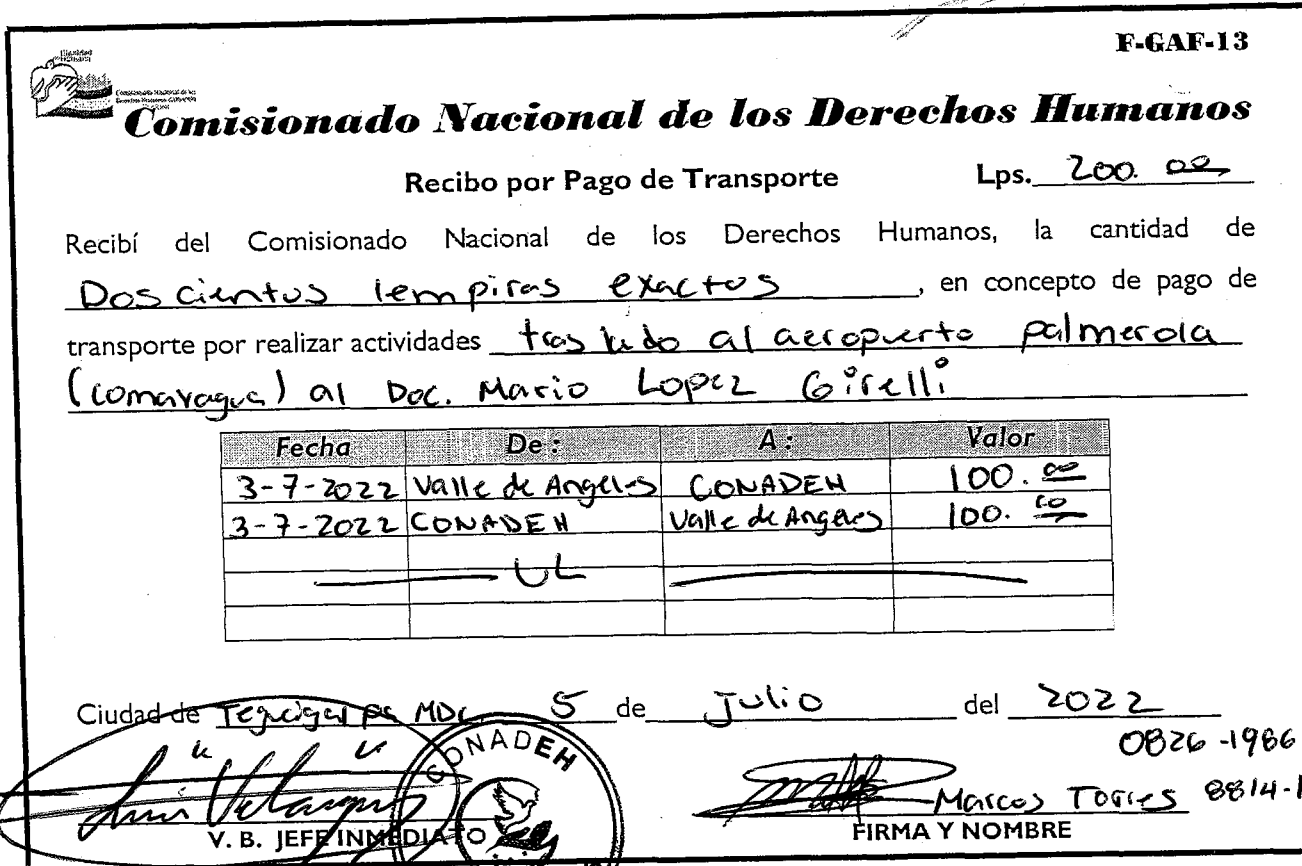 F-GAF-13
Dignidad Humana
Comisionado Nacional de los Derechos Humanos
Recibo por Pago de Transporte Lps. 200.00
Recibí del Comisionado Nacional de los Derechos Humanos, la cantidad de
Dos cientos lempiras exactos, en concepto de pago de
transporte por realizar actividades traslado al aeropuerto palmerola
(comayagua) al Doc. Mario Lopez Girelli
Fecha De: A: Valor
3-7-2022 Valle de Angeles CONADEH 100.00
3-7-2022 CONADEH Valle de Angeles 100.00
UL
Ciudad de Tegucigalpa MDC, 5 de Julio del 2022
0826-1986
CONADEH
Marcos Torres 8814-1
V. B. JEFE INMEDIATO FIRMA Y NOMBRE